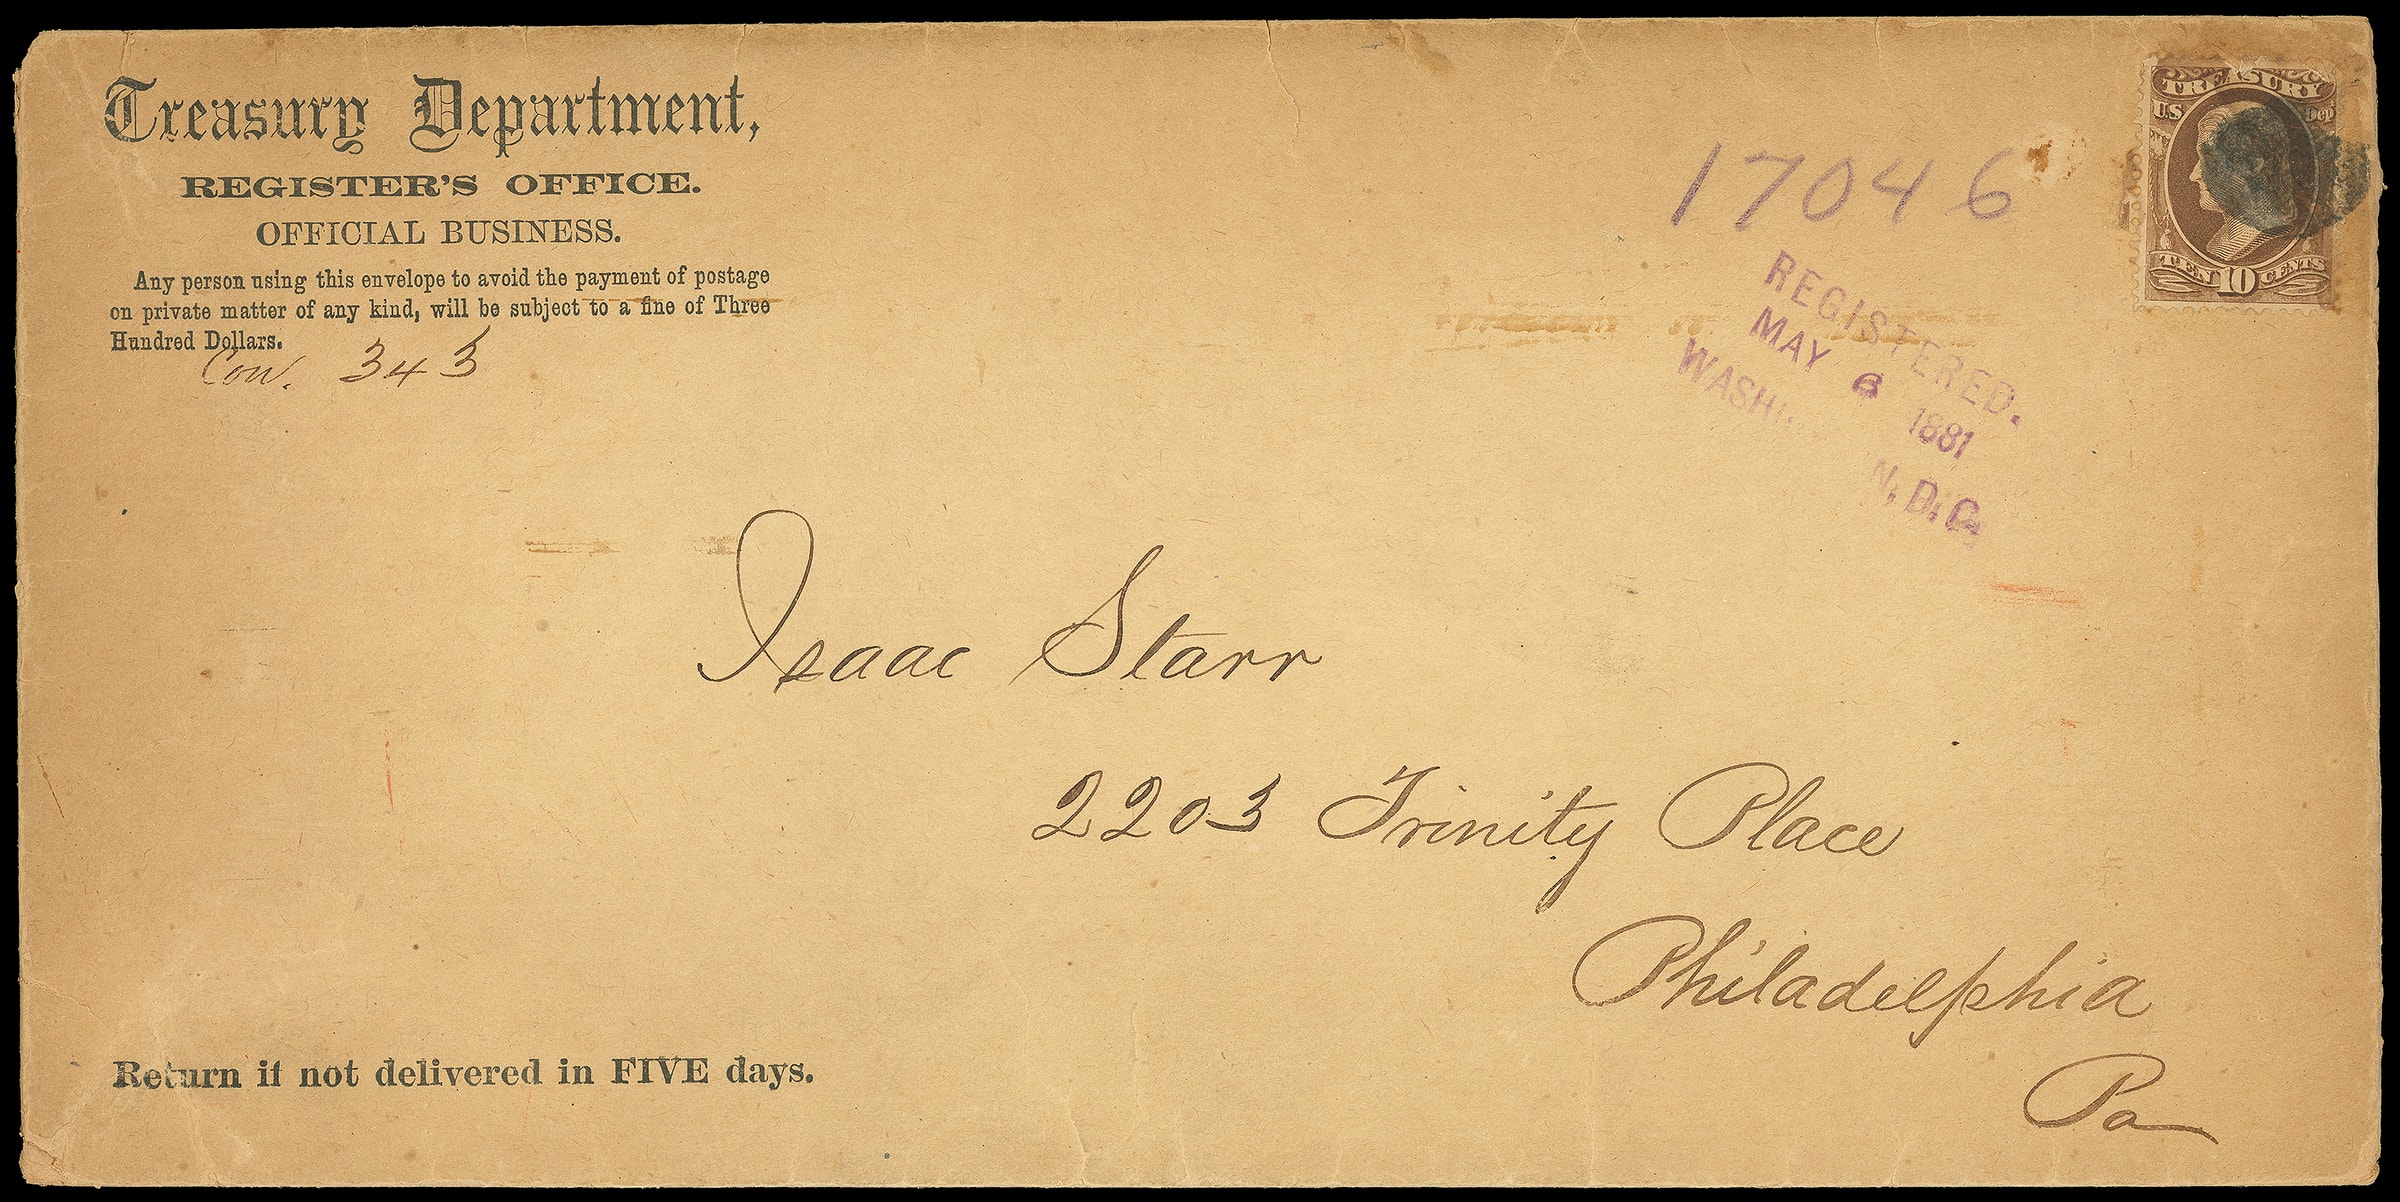 Treasury Department,
REGISTER'S OFFICE.
OFFICIAL BUSINESS.
Any person using this envelope to avoid the payment of postage
on private matter of any kind, will be subject to a fine of Three
Hundred Dollars.
Con. 343
17046
REGISTERED.
MAY 6 1881
N, D, C,
TREASURY
U.S. Dep
TEN 10 CENTS
Isaac Starr
2203 Trinity Place
Philadelphia
Pa
Return if not delivered in FIVE days.